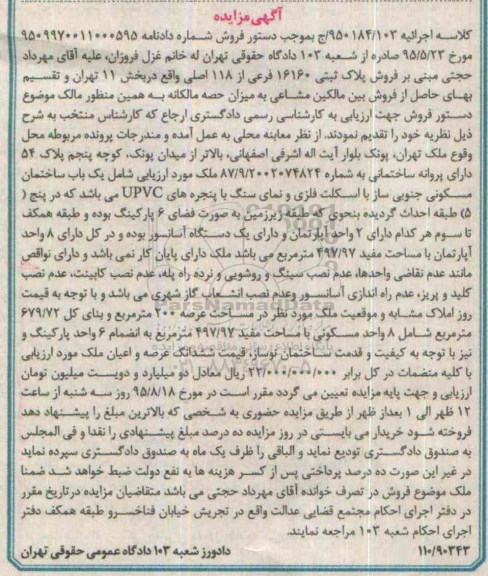 آگهی مزایده
کلاسه اجرائیه ۹۵۰۱۸۴/۱۰۳/ج بموجب دستور فروش شماره دادنامه ۹۵۰۹۹۷۰۰۱۱۰۰۰۵۹۵
مورخ ۹۵/۵/۲۳ صادره از شعبه ۱۰۳ دادگاه حقوقی تهران له خانم غزل فروزان، علیه آقای مهرداد
حجتی مبنی بر فروش پلاک ثبتی ۱۶۱۶۰ فرعی از ۱۱۸ اصلی واقع دربخش ۱۱ تهران و تقسیم
بهای حاصل از فروش بین مالکین مشاعی به میزان حصه مالکانه به همین منظور مالک موضوع
دستور فروش جهت ارزیابی به کارشناسی رسمی دادگستری ارجاع که کارشناس منتخب به شرح
ذیل نظریه خود را تقدیم نمودند. از نظر معاینه محلی به عمل آمده و مندرجات پرونده مربوطه محل
وقوع ملک تهران، پونک بلوار آیت اله اشرفی اصفهانی، بالاتر از میدان پونک، کوچه پنجم پلاک ۵۴
دارای پروانه ساختمانی به شماره ۸۷/۹/۲۰۰۲۰۷۴۸۲۴ ملک مورد ارزیابی شامل یک باب ساختمان
مسکونی جنوبی ساز با اسکلت فلزی و نمای سنگ با پنجره های UPVC می باشد که در پنج (
۵) طبقه احداث گردیده بنحوی که طبقه زیرزمین به صورت فضای ۶ پارکینگ بوده و طبقه همکف
تا سوم هر کدام دارای ۲ واحد آپارتمان و دارای یک دستگاه آسانسور بوده و در کل دارای ۸ واحد
آپارتمان با مساحت مفید ۴۹۷/۹۲ مترمربع می باشد ملک دارای پایان کار نمی باشد و دارای نواقص
مانند عدم نقاشی واحدها، عدم نصب سینگ و روشویی و نرده راه پله، عدم نصب کابینت، عدم نصب
کلید و پریز، عدم راه اندازی آسانسور وعدم نصب انشعاب گاز شهری می باشد و با توجه به قیمت
روز املاک مشابه و موقعیت ملک مورد نظر در مساحت عرصه ۲۰۰ مترمربع و بنای کل ۶۷۹/۷۲
مترمربع شامل ۸ واحد مسکونی با مساحت مفید ۴۹۷/۹۲ مترمربع به انضمام ۶ واحد پارکینگ و
نیز با توجه به کیفیت و قدمت ساختمان نوساز، قیمت ششدانگ عرصه و اعیان ملک مورد ارزیابی
با کلیه متضمات در کل برابر ۲۲/۰۰۰/۰۰۰/۰۰۰ ریال معادل دو میلیارد و دویست میلیون تومان
ارزیابی و جهت پایه مزایده تعیین می گردد مقرر است در مورخ ۹۵/۸/۱۸ روز سه شنبه از ساعت
۱۲ ظهر الی ۱ بعداز ظهر از طریق مزایده حضوری به شخصی که بالاترین مبلغ را پیشنهاد دهد
فروخته شود خریدار می بایستی در روز مزایده ده درصد مبلغ پیشنهادی را نقدا و فی المجلس
به صندوق دادگستری تودیع نماید و الباقی را ظرف یک ماه به صندوق دادگستری سپرده نماید
در غیر این صورت ده درصد پرداختی پس از کسر هزینه ها به نفع دولت ضبط خواهد شد ضمنا
ملک موضوع فروش در تصرف خوانده آقای مهرداد حجتی می باشد متقاضیان مزایده درتاریخ مقرر
در دفتر اجرای احکام مجتمع قضایی عدالت واقع در تجریش خیابان فناخسرو طبقه همکف دفتر
اجرای احکام شعبه ۱۰۳ مراجعه نمایند.
۱۱۰/۹۰۳۴۳ دادورز شعبه ۱۰۳ دادگاه عمومی حقوقی تهران